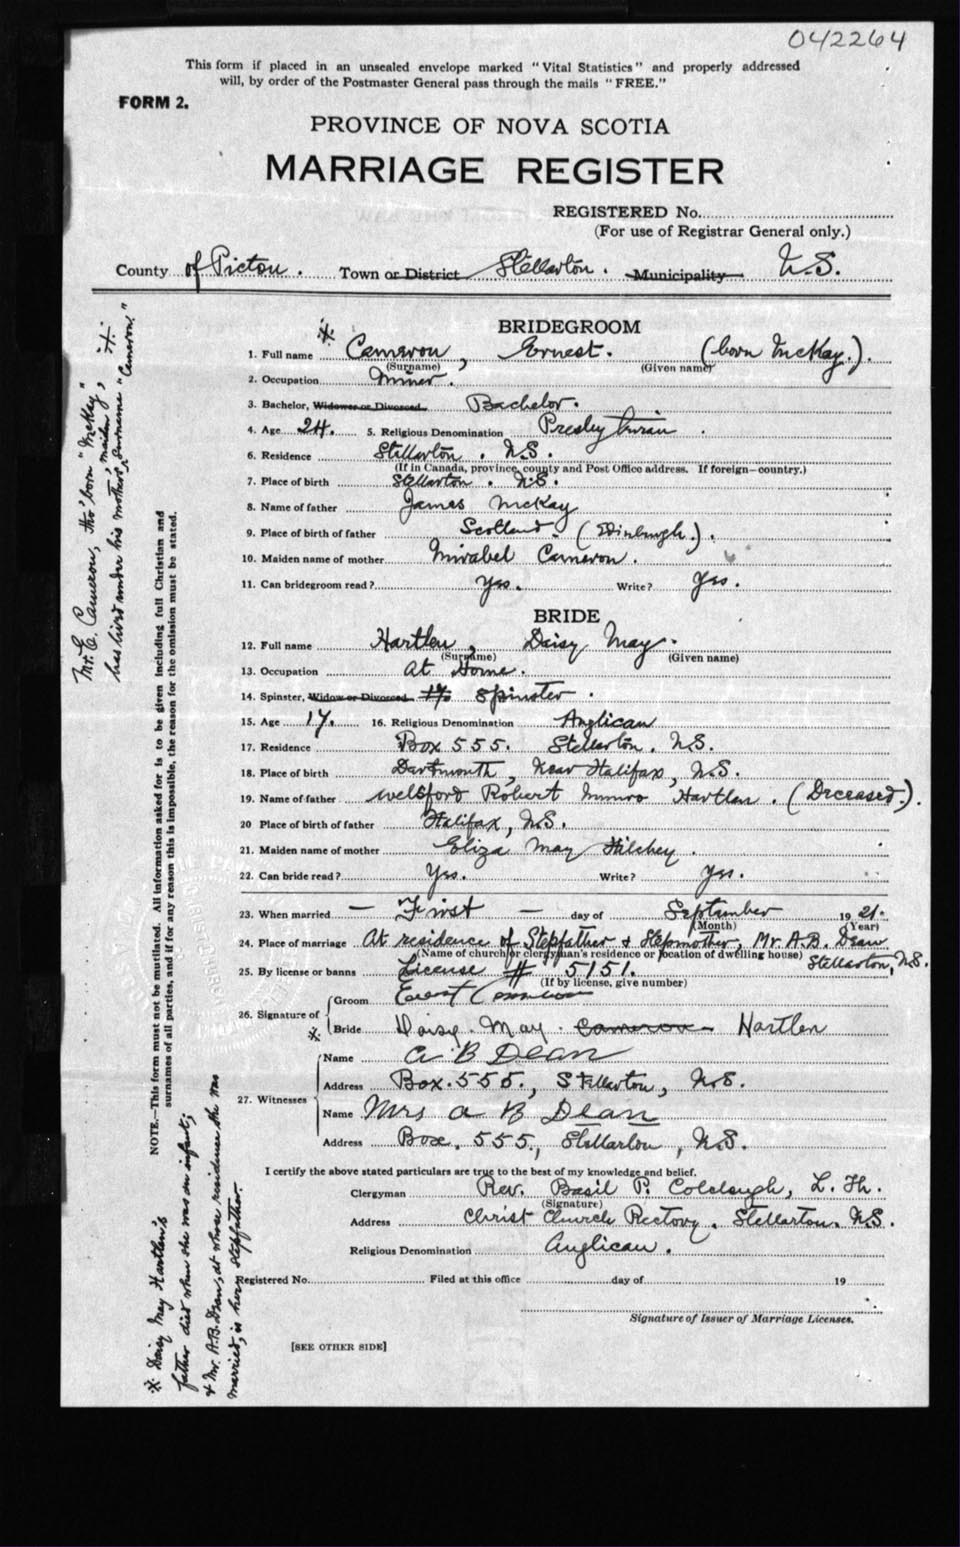 042264
This form if placed in an unsealed envelope marked "Vital Statistics" and properly addressed
will, by order of the Postmaster General pass through the mails "FREE."
FORM 2.
PROVINCE OF NOVA SCOTIA
MARRIAGE REGISTER
REGISTERED No.
(For use of Registrar General only.)
County of Pictou. Town or District Stellarton. Municipality N.S.
BRIDEGROOM
1. Full name Cameron, Ernest. (born McKay.).
(Surname) (Given name)
2. Occupation Miner.
3. Bachelor, Widower or Divorced Bachelor.
4. Age 24. 5. Religious Denomination Presbyterian.
6. Residence Stellarton. N.S.
(If in Canada, province, county and Post Office address. If foreign—country.)
7. Place of birth Stellarton. N.S.
8. Name of father James McKay
9. Place of birth of father Scotland. (Edinburgh.).
10. Maiden name of mother Mirabel Cameron.
11. Can bridegroom read? Yes. Write? Yes.
BRIDE
12. Full name Hartlen, Daisy May.
(Surname) (Given name)
13. Occupation At Home.
14. Spinster, Widow or Divorced 17. Spinster.
15. Age 17. 16. Religious Denomination Anglican
17. Residence Box 555. Stellarton. N.S.
18. Place of birth Dartmouth, Near Halifax, N.S.
19. Name of father Welsford Robert Munro Hartlan. (Deceased.).
20 Place of birth of father Halifax, N.S.
21. Maiden name of mother Eliza May Hilchey.
22. Can bride read? Yes. Write? Yes.
23. When married — First — day of September 1921.
(Month) (Year)
24. Place of marriage At residence of Stepfather & Stepmother, Mr. A.B. Dean
(Name of church or clergyman's residence or location of dwelling house) Stellarton, N.S.
25. By license or banns License # 5151.
(If by license, give number)
26. Signature of Groom Ernest Cameron
Bride Daisy May. Cameron Hartlen
27. Witnesses Name A B Dean
Address Box. 555., Stellarton, N.S.
Name Mrs A B Dean
Address Box. 555., Stellarton, N.S.
I certify the above stated particulars are true to the best of my knowledge and belief.
Clergyman Rev. Basil P. Colclough, L. Th.
(Signature)
Address Christ Church Rectory. Stellarton. N.S.
Religious Denomination Anglican.
Registered No. Filed at this office day of 19
Signature of Issuer of Marriage Licenses.
[SEE OTHER SIDE]
Mr. E. Cameron, tho' born "McKay"
has lived under his mother's 'maiden' surname "Cameron."
NOTE.—This form must not be mutilated. All information asked for is to be given including full Christian and
surnames of all parties, and if for any reason this is impossible, the reason for the omission must be stated.
* Daisy May Hartlen's
father died when she was an infant;
& Mr. A.B. Dean, at whose residence she was
married, is her stepfather.